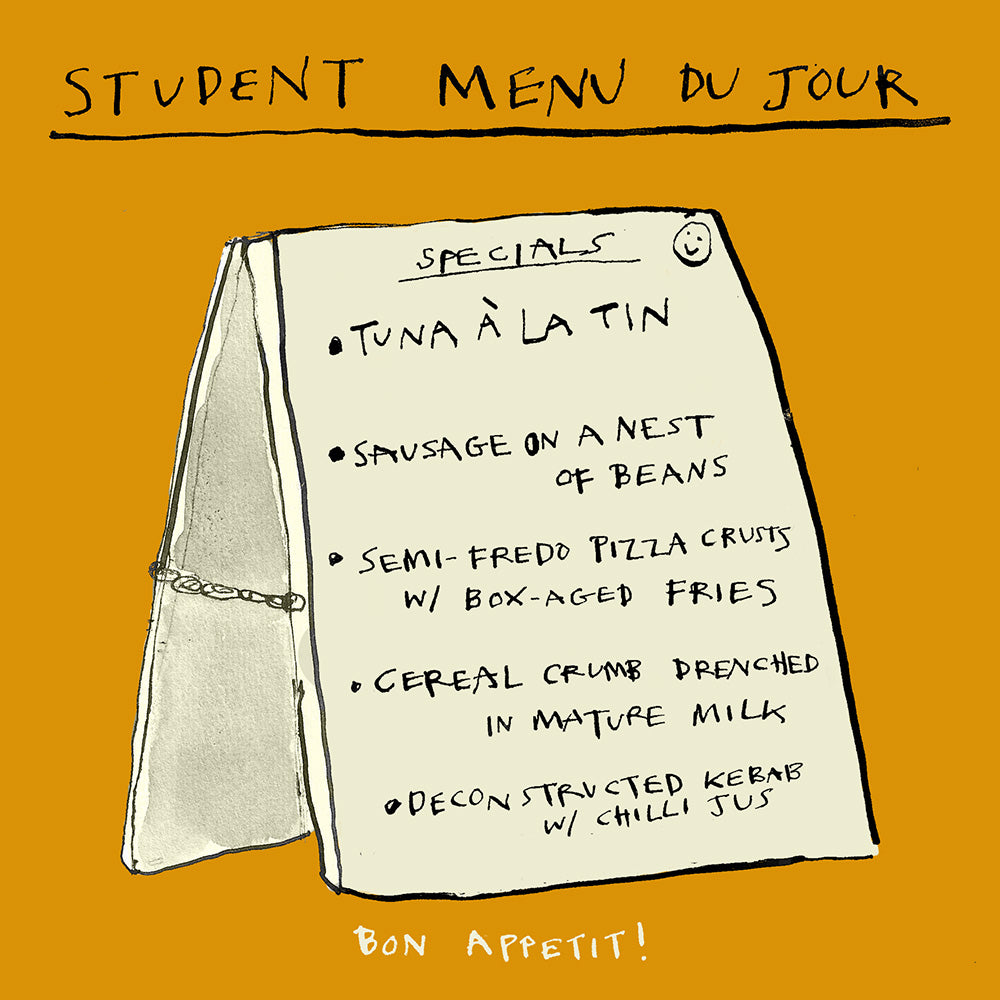 STUDENT MENU DU JOUR
SPECIALS
• TUNA À LA TIN
• SAUSAGE ON A NEST
OF BEANS
• SEMI-FREDO PIZZA CRUSTS
W/ BOX-AGED FRIES
• CEREAL CRUMB DRENCHED
IN MATURE MILK
• DECONSTRUCTED KEBAB
W/ CHILLI JUS
BON APPETIT!